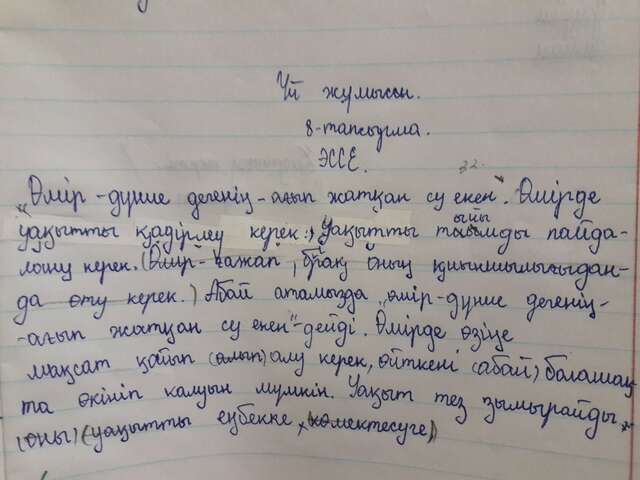 Үй жұмысы.
8-тапсырма.
ЭССЕ.
„Өмір-дүние дегенің-ағып жатқан су екен". Өмірде
уақытты қадірлеу керек. Уақытты тиымды пайда-
лану керек. (Өмір-ғажап, бірақ оның қиыншылығыдан-
да өту керек.) Абай атамызда „өмір-дүние дегенің-
-ағып жатқан су екен"-дейді. Өмірде өзіңе
мақсат қайып (алып) алу керек, өйткені (абай) болашақ
та өкініп калуын мүмкін. Уақыт тез зымырайды,
(оны) (уақытты еңбекке, көмектесуге)